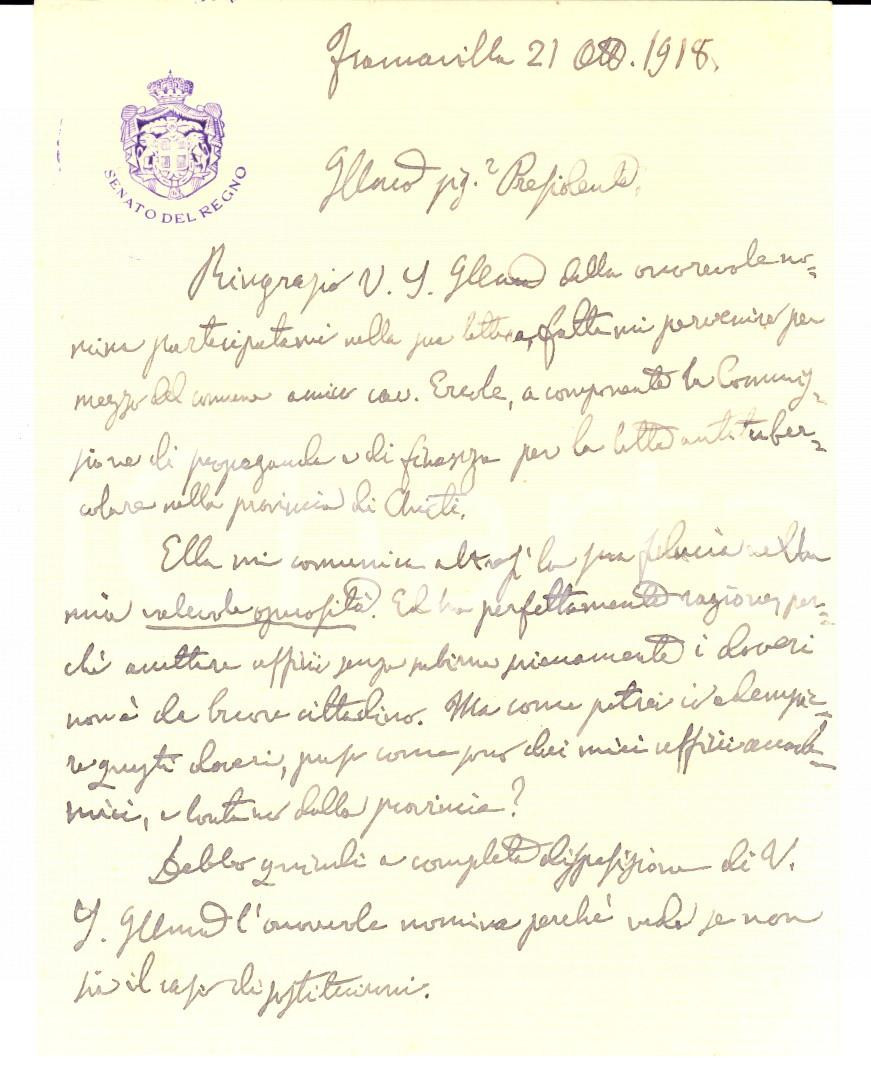 Francavilla 21 Ott. 1918.
SENATO DEL REGNO
Ill.mo sig.r Presidente,
Ringrazio V. S. Ill.ma della onorevole no=
mina partecipatami nella sua lettera, fattami pervenire per
mezzo del comune amico cav. Ercole, a componente la Commis=
sione di propaganda e di finanza per la lotta antituber=
colare nella provincia di Chieti.
Ella mi comunica altresì la sua fiducia nella
mia valevole operosità. Ed ha perfettamente ragione, per=
chè accettare uffici senza subirne pienamente i doveri
non è da buon cittadino. Ma come potrei io adempie=
re questi doveri, preso come sono dai miei uffici accade=
mici, e lontano dalla provincia?
Debbo quindi a completa disposizione di V.
S. Ill.ma l'onorevole nomina perchè veda se non
sia il caso di sostituirmi.